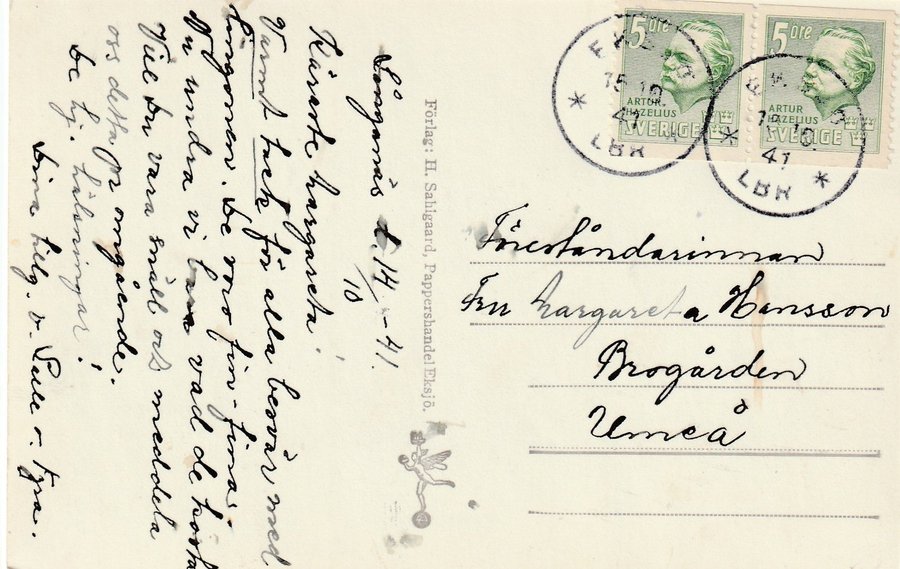 Långanäs d. 14/10 - 41.
Käraste Margareta!
Varmt tack för alla besvär med
lingonen. De voro fin-fina.
Nu undra vi bara vad de kosta
Vill du vara snäll och meddela
oss detta pr omgående.
De hj. hälsningar!
Dina tillg.
Förlag: H. Sahlgaard, Pappershandel Eksjö.
5 öre
ARTUR
HAZELIUS
SVERIGE
5 öre
ARTUR
HAZELIUS
SVERIGE
15 10
41
LBR
41
LBR
Föreståndarinnan
Fru Margareta Hansson
Brogården
Umeå